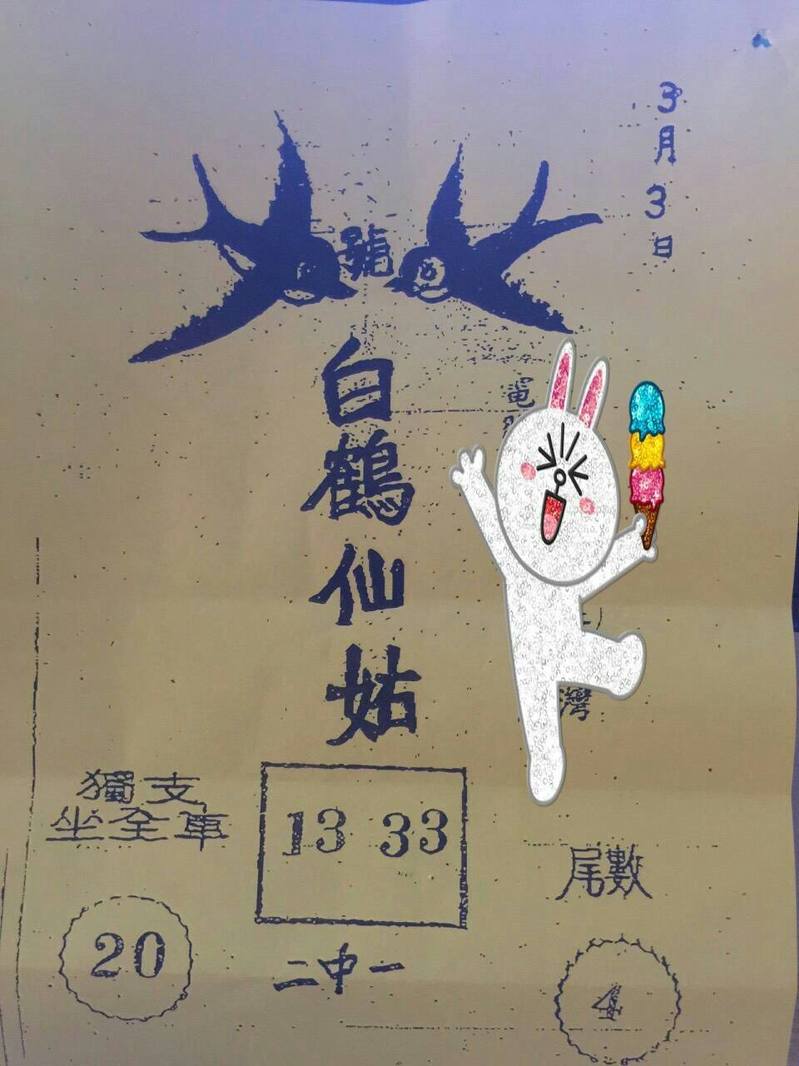 3月3日
號
白鶴仙姑
灣
獨支
坐全車
20
13 33
二中一
尾數
4